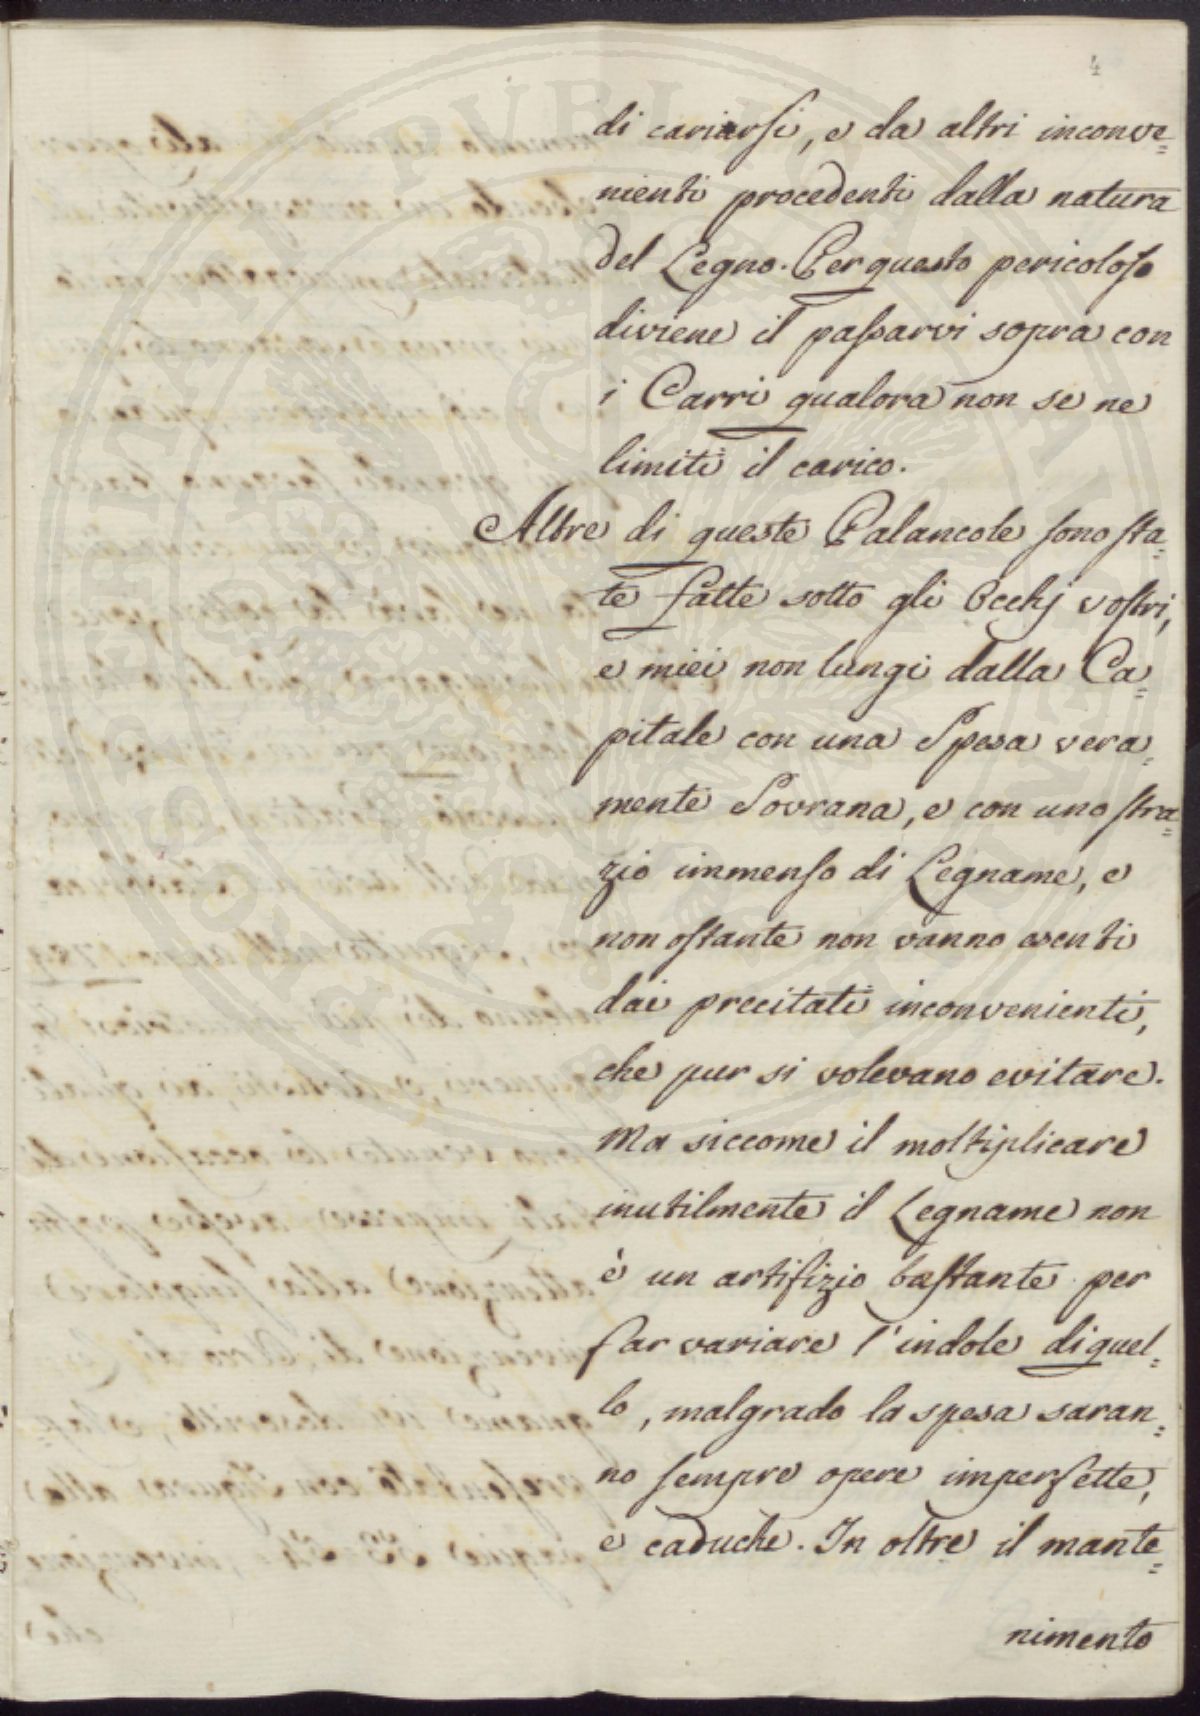 4
di cariarsi, e da altri inconve=
nienti procedenti dalla natura
del Legno. Per questo pericoloso
diviene il passarvi sopra con
i Carri qualora non se ne
limiti il carico.
Altre di queste Palancole sono sta=
te fatte sotto gli Occhj vostri,
e miei non lungi dalla Ca=
pitale con una Spesa vera=
mente Sovrana, e con uno stra=
zio immenso di Legname, e
non ostante non vanno esenti
dai precitati inconvenienti,
che pur si volevano evitare.
Ma siccome il moltiplicare
inutilmente il Legname non
è un artifizio bastante per
far variare l'indole di quel=
lo, malgrado la spesa saran=
no sempre opere imperfette,
e caduche. In oltre il mante=
nimento